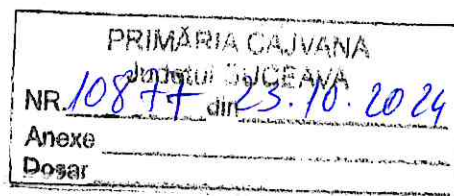 PRIMĂRIA CAJVANA
Județul SUCEAVA
NR. 10877 din 23.10.2024
Anexe
Dosar